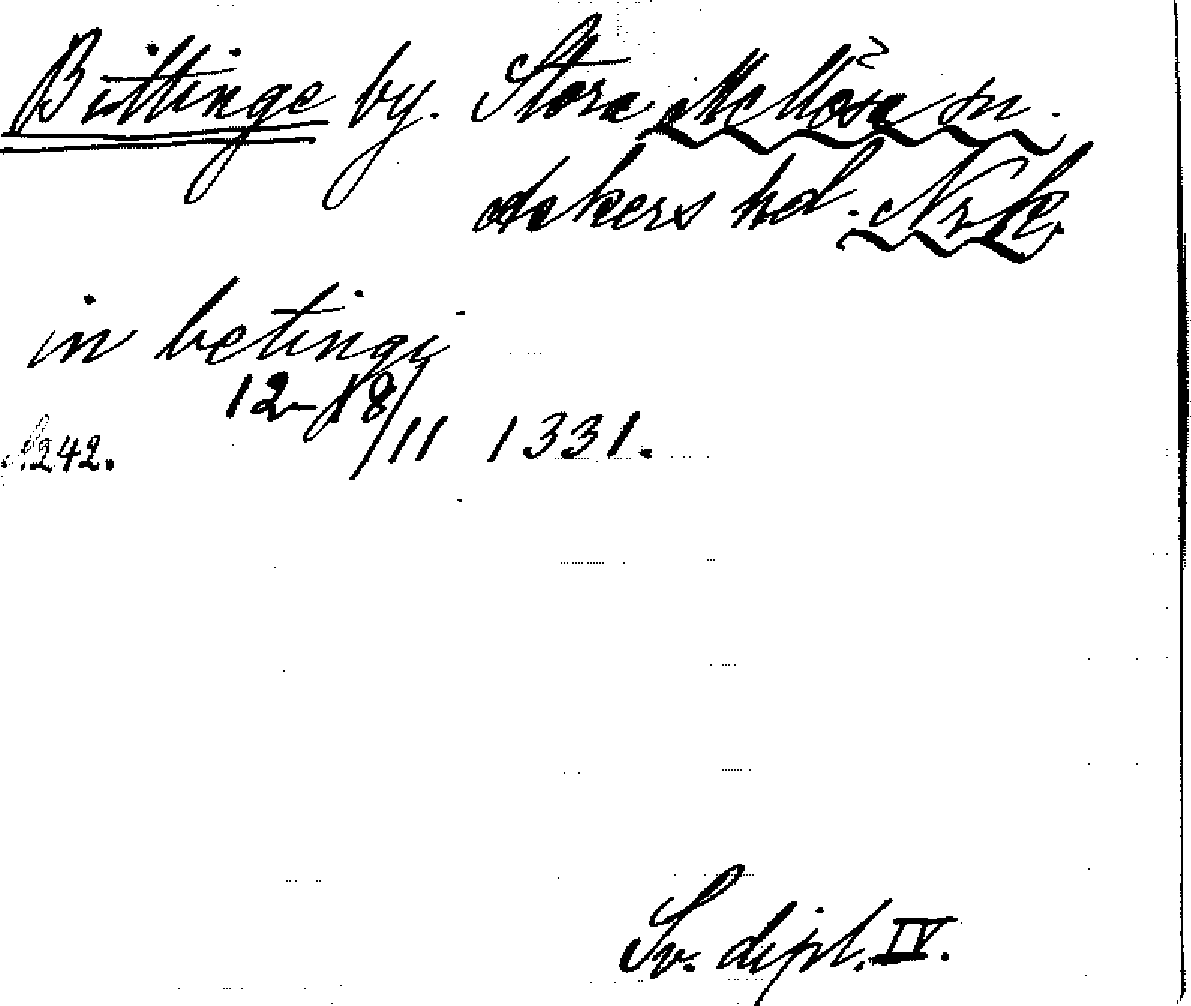 Bittinge by. Stora Mellösa sn.
Askers hd. Nrk.
in betingi
12-18/11 1331.
S. 242.
Sv. dipl. IV.